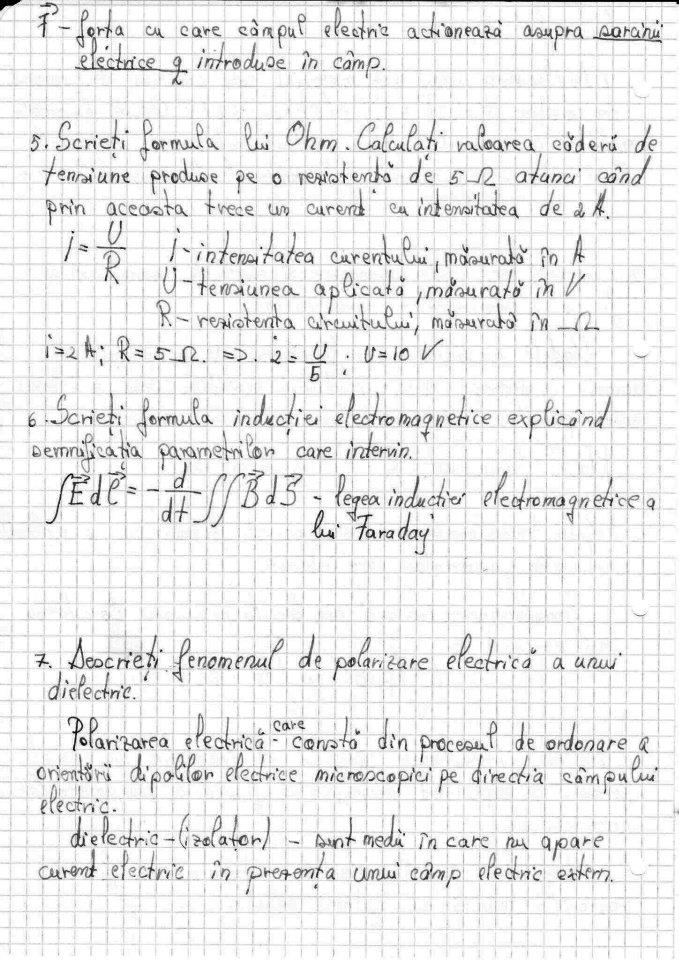 F⃗ - forța cu care câmpul electric acționează asupra sarcinii
electrice q/2 introduse în câmp.
5. Scrieți formula lui Ohm. Calculați valoarea căderii de
tensiune produse pe o rezistență de 5 Ω atunci când
prin aceasta trece un curent cu intensitatea de 2 A.
i = U/R i - intensitatea curentului, măsurată în A
U - tensiunea aplicată, măsurată în V
R - rezistenta circuitului, măsurată în Ω
i=2 A; R = 5 Ω. => 2 = U/5 ; U = 10 V
6. Scrieți formula inducției electromagnetice explicând
semnificația parametrilor care intervin.
∫E⃗ dℓ⃗ = - d/dt ∫∫ B⃗ dS⃗ - legea inducției electromagnetice a
lui Faraday
7. Descrieți fenomenul de polarizare electrică a unui
dielectric.
Polarizarea electrică - care constă din procesul de ordonare a
orientării dipolilor electrice microscopici pe direcția câmpului
electric.
dielectric - (izolator) - sunt medii în care nu apare
curent electric în prezența unui câmp electric extern.